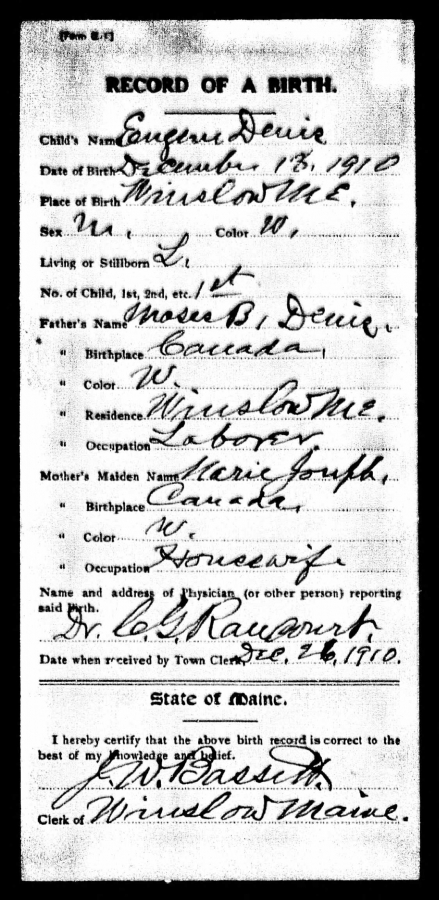 RECORD OF A BIRTH.
Child's Name Eugene Denis
Date of Birth December 13, 1910
Place of Birth Winslow ME.
Sex M. Color W.
Living or Stillborn L.
No. of Child, 1st, 2nd, etc. 1st
Father's Name Moses B. Denis.
" Birthplace Canada,
" Color W.
" Residence Winslow Me.
" Occupation Laborer.
Mother's Maiden Name Marie Joseph.
" Birthplace Canada,
" Color W.
" Occupation Housewife
Name and address of Physician (or other person) reporting
said Birth.
Dr. C. G. Rancourt.
Date when received by Town Clerk, Dec. 26, 1910.
State of Maine.
I hereby certify that the above birth record is correct to the
best of my knowledge and belief.
J. W. Bassett
Clerk of Winslow Maine.